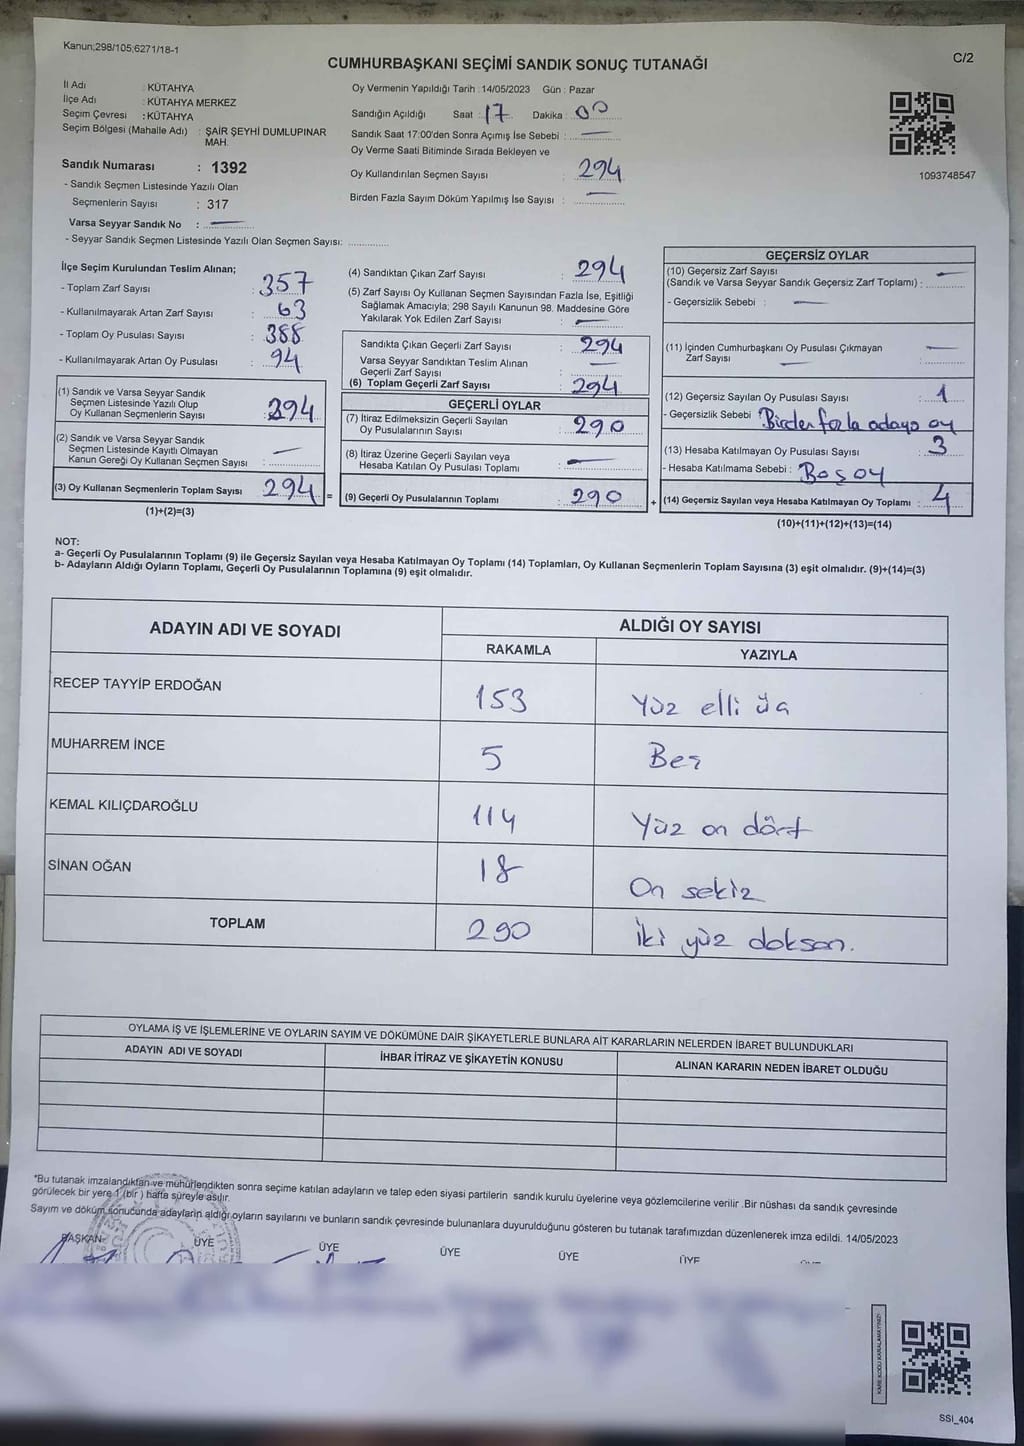 Kanun;298/105;6271/18-1
C/2
CUMHURBAŞKANI SEÇİMİ SANDIK SONUÇ TUTANAĞI
İl Adı : KÜTAHYA
İlçe Adı : KÜTAHYA MERKEZ
Seçim Çevresi : KÜTAHYA
Seçim Bölgesi (Mahalle Adı) : ŞAİR ŞEYHİ DUMLUPINAR
MAH.
Sandık Numarası : 1392
- Sandık Seçmen Listesinde Yazılı Olan
Seçmenlerin Sayısı : 317
Varsa Seyyar Sandık No :
- Seyyar Sandık Seçmen Listesinde Yazılı Olan Seçmen Sayısı:
Oy Vermenin Yapıldığı Tarih : 14/05/2023 Gün : Pazar
Sandığın Açıldığı Saat : 17 Dakika : 00
Sandık Saat 17:00'den Sonra Açımış İse Sebebi :
Oy Verme Saati Bitiminde Sırada Bekleyen ve
Oy Kullandırılan Seçmen Sayısı : 294
Birden Fazla Sayım Döküm Yapılmış İse Sayısı :
1093748547
İlçe Seçim Kurulundan Teslim Alınan;
- Toplam Zarf Sayısı : 357
- Kullanılmayarak Artan Zarf Sayısı : 63
- Toplam Oy Pusulası Sayısı : 388
- Kullanılmayarak Artan Oy Pusulası : 94
(1) Sandık ve Varsa Seyyar Sandık
Seçmen Listesinde Yazılı Olup
Oy Kullanan Seçmenlerin Sayısı : 294
(2) Sandık ve Varsa Seyyar Sandık
Seçmen Listesinde Kayıtlı Olmayan
Kanun Gereği Oy Kullanan Seçmen Sayısı :
(3) Oy Kullanan Seçmenlerin Toplam Sayısı 294 =
(1)+(2)=(3)
(4) Sandıktan Çıkan Zarf Sayısı : 294
(5) Zarf Sayısı Oy Kullanan Seçmen Sayısından Fazla İse, Eşitliği
Sağlamak Amacıyla; 298 Sayılı Kanunun 98. Maddesine Göre
Yakılarak Yok Edilen Zarf Sayısı :
Sandıkta Çıkan Geçerli Zarf Sayısı : 294
Varsa Seyyar Sandıktan Teslim Alınan
Geçerli Zarf Sayısı :
(6) Toplam Geçerli Zarf Sayısı : 294
GEÇERLİ OYLAR
(7) İtiraz Edilmeksizin Geçerli Sayılan
Oy Pusulalarının Sayısı : 290
(8) İtiraz Üzerine Geçerli Sayılan veya
Hesaba Katılan Oy Pusulası Toplamı :
(9) Geçerli Oy Pusulalarının Toplamı : 290 +
GEÇERSİZ OYLAR
(10) Geçersiz Zarf Sayısı
(Sandık ve Varsa Seyyar Sandık Geçersiz Zarf Toplamı) :
- Geçersizlik Sebebi :
(11) İçinden Cumhurbaşkanı Oy Pusulası Çıkmayan
Zarf Sayısı :
(12) Geçersiz Sayılan Oy Pusulası Sayısı : 1
- Geçersizlik Sebebi : Birden fazla adaya oy
(13) Hesaba Katılmayan Oy Pusulası Sayısı : 3
- Hesaba Katılmama Sebebi : Boş oy
(14) Geçersiz Sayılan veya Hesaba Katılmayan Oy Toplamı : 4
(10)+(11)+(12)+(13)=(14)
NOT:
a- Geçerli Oy Pusulalarının Toplamı (9) ile Geçersiz Sayılan veya Hesaba Katılmayan Oy Toplamı (14) Toplamları, Oy Kullanan Seçmenlerin Toplam Sayısına (3) eşit olmalıdır. (9)+(14)=(3)
b- Adayların Aldığı Oyların Toplamı, Geçerli Oy Pusulalarının Toplamına (9) eşit olmalıdır.
ADAYIN ADI VE SOYADI
ALDIĞI OY SAYISI
RAKAMLA YAZIYLA
RECEP TAYYİP ERDOĞAN 153 Yüz elli üç
MUHARREM İNCE 5 Beş
KEMAL KILIÇDAROĞLU 114 Yüz on dört
SİNAN OĞAN 18 On sekiz
TOPLAM 290 İki yüz doksan.
OYLAMA İŞ VE İŞLEMLERİNE VE OYLARIN SAYIM VE DÖKÜMÜNE DAİR ŞİKAYETLERLE BUNLARA AİT KARARLARIN NELERDEN İBARET BULUNDUKLARI
ADAYIN ADI VE SOYADI İHBAR İTİRAZ VE ŞİKAYETİN KONUSU ALINAN KARARIN NEDEN İBARET OLDUĞU
*Bu tutanak imzalandıktan ve mühürlendikten sonra seçime katılan adayların ve talep eden siyasi partilerin sandık kurulu üyelerine veya gözlemcilerine verilir .Bir nüshası da sandık çevresinde
görülecek bir yere 1 (bir ) hafta süreyle asılır.
Sayım ve döküm sonucunda adayların aldığı oyların sayılarını ve bunların sandık çevresinde bulunanlara duyurulduğunu gösteren bu tutanak tarafımızdan düzenlenerek imza edildi. 14/05/2023
BAŞKAN ÜYE ÜYE ÜYE ÜYE ÜYE
KARE KODU KARALAMAYINIZ!
SSI_404